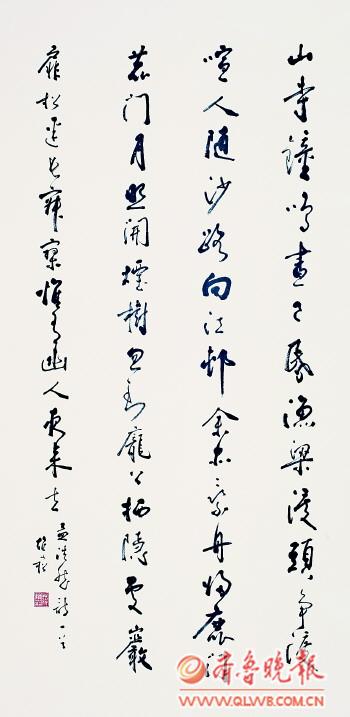 山寺鐘鳴晝已昏漁梁渡頭爭渡
喧人随沙路向江邨余亦乘舟歸鹿门
鹿门月照開煙樹忽到龐公栖隱處巖
扉松逕长寂寥惟有幽人夜来去
孟浩然詩一首
齐鲁晚报
WWW.QLWB.COM.CN